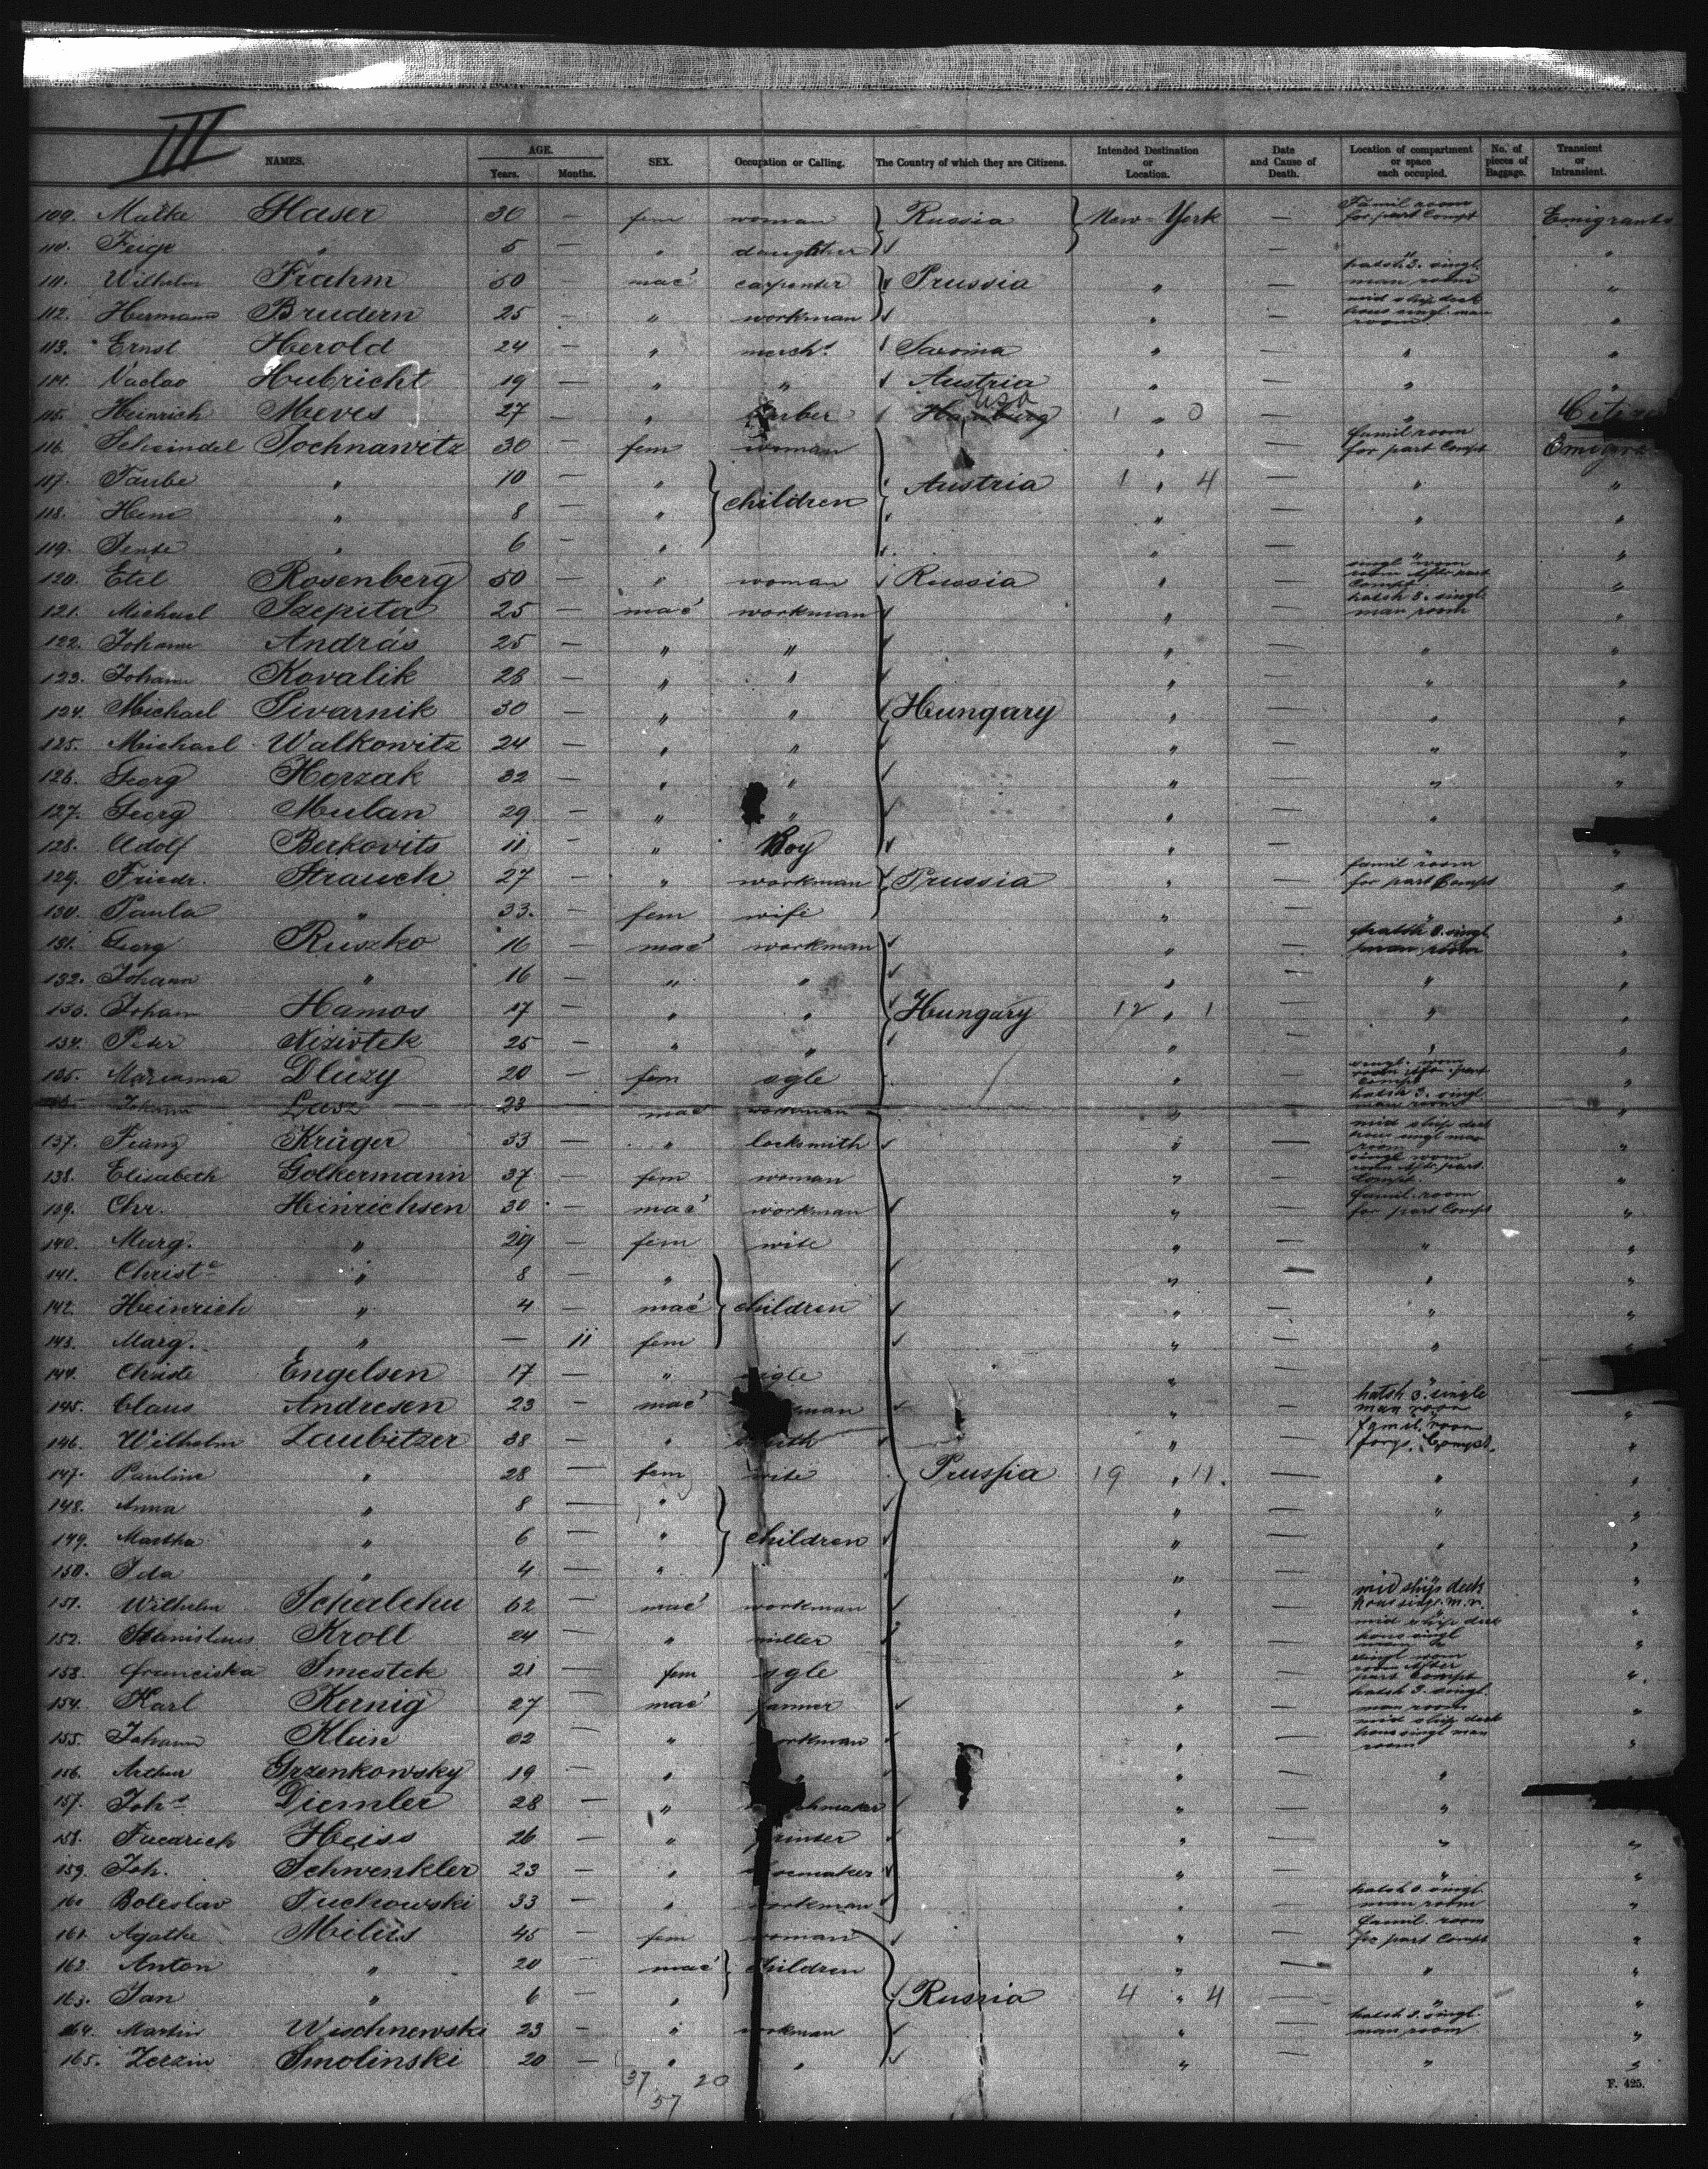 III
NAMES. AGE. Years. Months. SEX. Occupation or Calling. The Country of which they are Citizens. Intended Destination or Location. Date and Cause of Death. Location of compartment or space each occupied. No. of pieces of Baggage. Transient or Intransient.
109. Malke Glaser 30 — fem woman Russia New-York — Famil room for part Compt Emigrants
110. Feige " 5 — " daughter —  "
111. Wilhelm Frahm 50 — mac carpenter Prussia " — hatsh 3. singl. man room "
112. Hermann Brudern 25 — " workman " — mid ship deck hous singl. man room "
113. Ernst Herold 24 — " merch.t " — " "
114. Vaclav Hubricht 19 — " " Austria " — " "
115. Heinrich Meves 27 — " Hamburg usa 1 " 0 — "
116. Scheindel Sochnawitz 30 — fem woman " — famil room for part Compt
117. Taube " 10 — " children Austria 1 " 4 — " "
118. " 8 — " " — " "
119. " 6 — " " — " "
120. Etel Rosenberg 50 — " woman Russia " — "
121. Michael Szepita 25 — mac workman " — hatsh 3. singl. man room "
122. Johann András 25 — " " " — " "
123. Johann Kovalik 28 — " " " — " "
124. Michael Pivarnik 30 — " " Hungary " — " "
125. Michael Walkowitz 24 — " " " — " "
126. Georg Horzak 32 — " " " — " "
127. Georg Mulan 29 — " " " — "
128. Adolf Berkovits 11 — " Boy " — " "
129. Friedr. Strauch 27 — " workman Prussia " — famil room for part Compt "
130. Paula " 33. — fem wife " — " "
131. Georg Ruszko 16 — mac workman " — hatsh 3. singl. man room "
132. Johann " 16 — " " " — " "
133. Johann Hamos 17 — " " Hungary 12 " 1 — " "
134. Peter 25 — " " " — " "
135. Marianna Dluzy 20 — fem sgle " — "
Johann Lasz 23 mac workman " hatsh 3. singl. man room "
137. Franz Krüger 33 — " locksmith " — mid ship deck hous singl man room "
138. Elisabeth Golkermann 37 — fem woman " — "
139. Chr. Heinrichsen 30 — mac workman " — famil. room for part Compt "
140. Marg. " 29 — fem wife " — " "
141. Christe " 8 — " " — " "
142. Heinrich " 4 — mac children " — " "
143. Marg. " — 11 fem " — " "
144. Christe Engelsen 17 — " " — " "
145. Claus Andresen 23 — mac " — hatsh 3. single man room "
146. Wilhelm Laubitzer 38 — " " — famil. room forp. Compt. "
147. Pauline " 28 — fem wife Prussia 19 " 11. — " "
148. Anna " 8 — " " — " "
149. Martha " 6 — " children " — " "
150. Ida " 4 — " " — "
151. Wilhelm Schalchu 62 — mac workman " — mid ship deck hous singl. m. r. "
152. Stanislaus Kroll 24 — " miller " — mid ship deck hous singl "
153. Franciska Smestek 21 — fem sgle " — singl wom room After part Compt "
154. Karl Kernig 27 — mac " — hatsh 3. singl. man room "
155. Johann Klein 32 — " workman " — mid ship deck hous singl man room "
156. Arthur Grzenkowsky 19 — " " — "
157. Joh.s Diemler 28 — " " — "
158. Friedrich Heiss 26 — " " — " "
159. Joh. Schwenkler 23 — " " — " "
160 Boleslav Tuchowski 33 — " workman " — man room "
161. Agathe Milus 45 — fem woman " — famil. room for part Compt "
162. Anton " 20 — mac children " — " "
163. Jan " 6 — " Russia 4 " 4 — " "
164. Martin Wischnewski 23 — " workman " — hatsh 3. singl. man room "
165. Smolinski 20 — " " " — " "
37 20
57
F. 425.